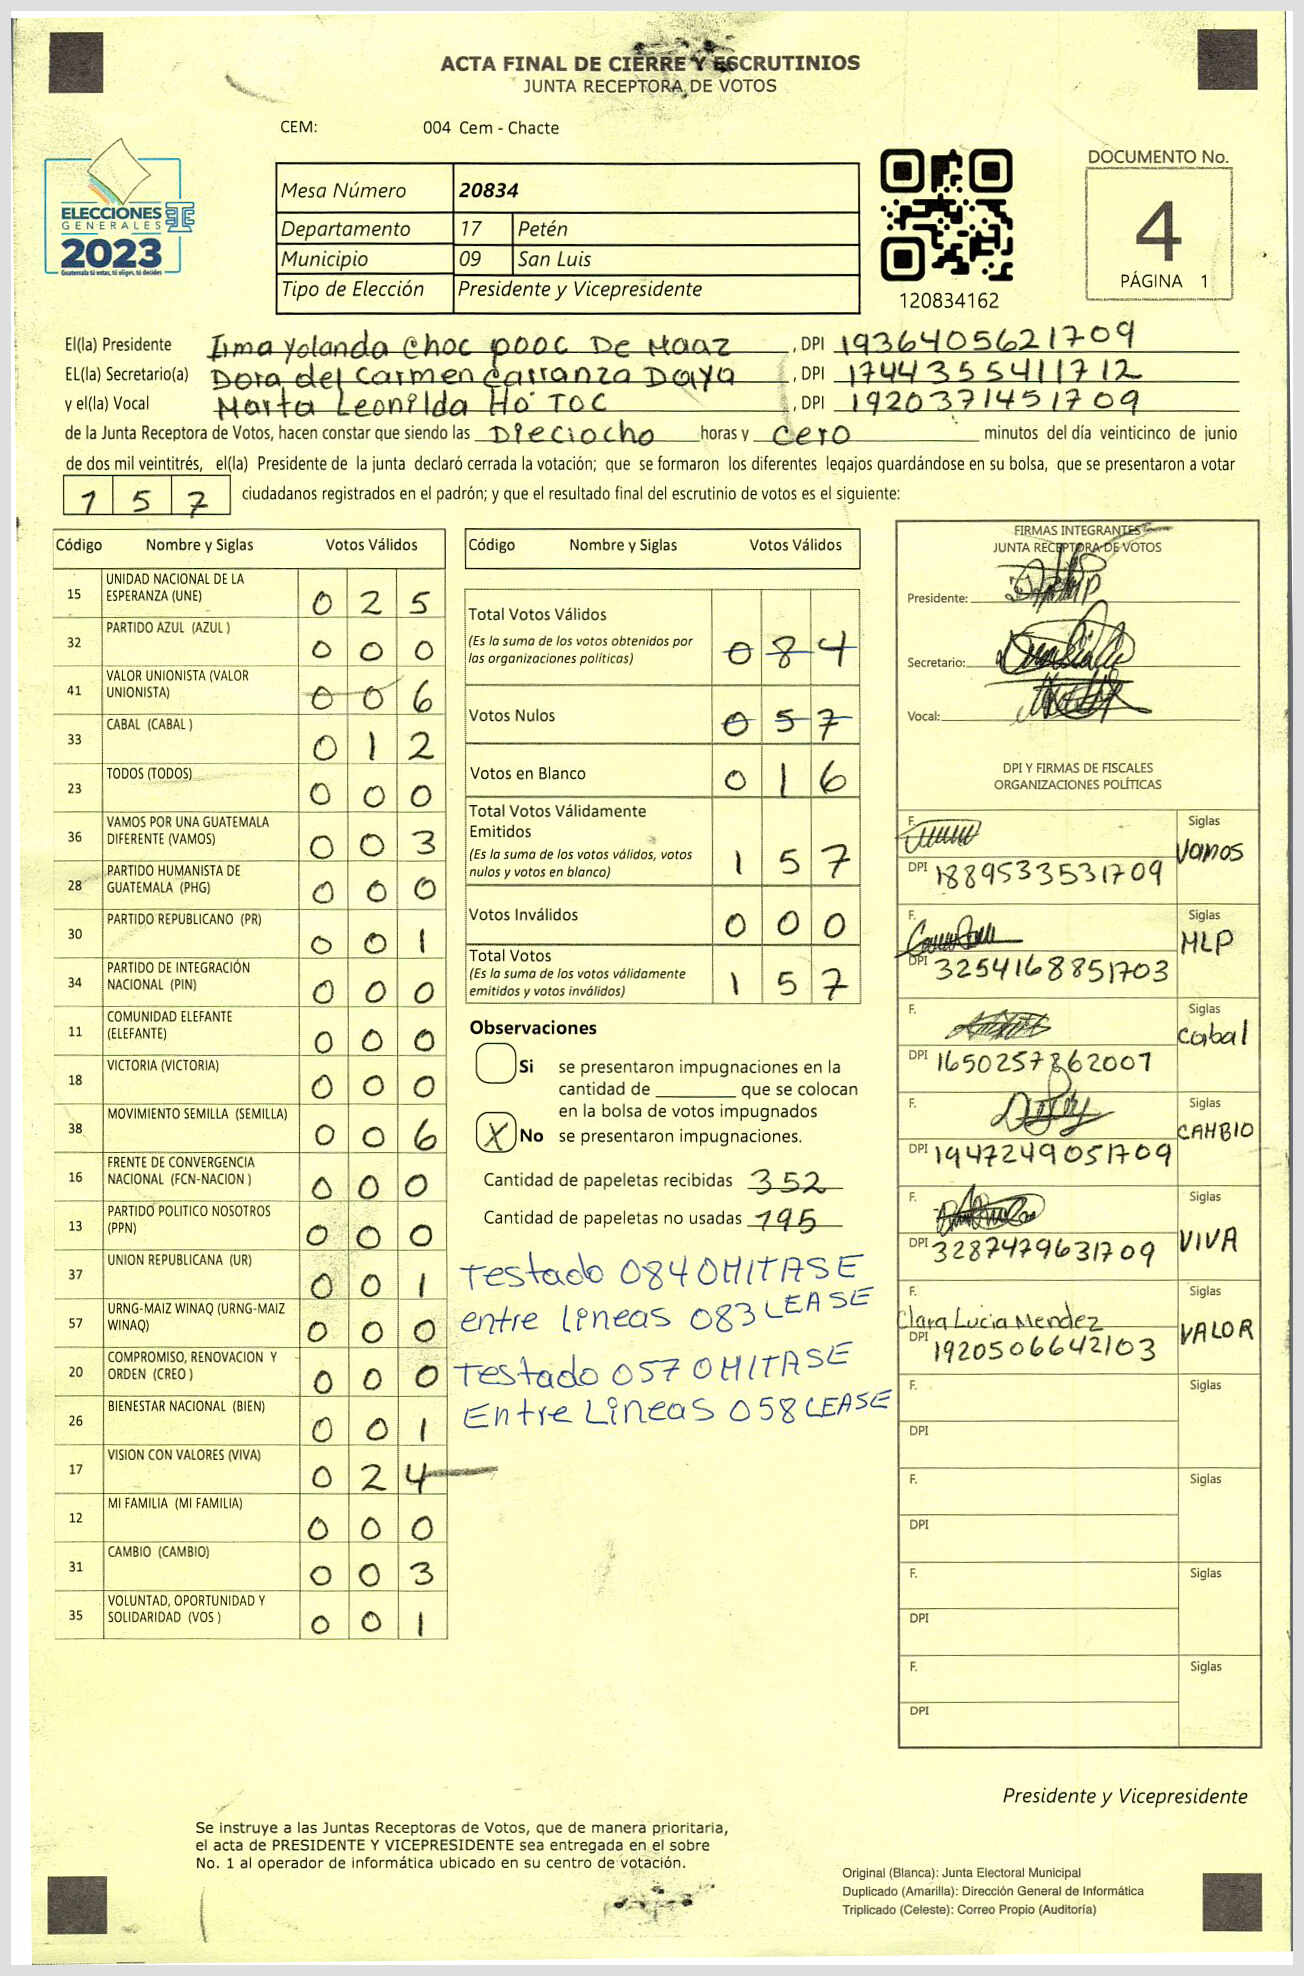 ACTA FINAL DE CIERRE Y ESCRUTINIOS
JUNTA RECEPTORA DE VOTOS
CEM: 004 Cem - Chacte
ELECCIONES
GENERALES
2023
Guatemala tú votas, tú eliges, tú decides
Mesa Número 20834
Departamento 17 Petén
Municipio 09 San Luis
Tipo de Elección Presidente y Vicepresidente
120834162
DOCUMENTO No.
4
PÁGINA 1
El(la) Presidente Irma Yolanda Choc pooc De Maaz , DPI 1936405621709
EL(la) Secretario(a) Dora del Carmen Carranza Daya , DPI 1744355411712
y el(la) Vocal Marta Leonilda Ho TOC , DPI 1920371451709
de la Junta Receptora de Votos, hacen constar que siendo las Dieciocho horas y cero minutos del día veinticinco de junio
de dos mil veintitrés, el(la) Presidente de la junta declaró cerrada la votación; que se formaron los diferentes legajos guardándose en su bolsa, que se presentaron a votar
157 ciudadanos registrados en el padrón; y que el resultado final del escrutinio de votos es el siguiente:
Código Nombre y Siglas Votos Válidos
15 UNIDAD NACIONAL DE LA ESPERANZA (UNE) 025
32 PARTIDO AZUL (AZUL ) 000
41 VALOR UNIONISTA (VALOR UNIONISTA) 006
33 CABAL (CABAL ) 012
23 TODOS (TODOS) 000
36 VAMOS POR UNA GUATEMALA DIFERENTE (VAMOS) 003
28 PARTIDO HUMANISTA DE GUATEMALA (PHG) 000
30 PARTIDO REPUBLICANO (PR) 001
34 PARTIDO DE INTEGRACIÓN NACIONAL (PIN) 000
11 COMUNIDAD ELEFANTE (ELEFANTE) 000
18 VICTORIA (VICTORIA) 000
38 MOVIMIENTO SEMILLA (SEMILLA) 006
16 FRENTE DE CONVERGENCIA NACIONAL (FCN-NACION ) 000
13 PARTIDO POLITICO NOSOTROS (PPN) 000
37 UNION REPUBLICANA (UR) 001
57 URNG-MAIZ WINAQ (URNG-MAIZ WINAQ) 000
20 COMPROMISO, RENOVACION Y ORDEN (CREO ) 000
26 BIENESTAR NACIONAL (BIEN) 001
17 VISION CON VALORES (VIVA) 024
12 MI FAMILIA (MI FAMILIA) 000
31 CAMBIO (CAMBIO) 003
35 VOLUNTAD, OPORTUNIDAD Y SOLIDARIDAD (VOS ) 001
Código Nombre y Siglas Votos Válidos
Total Votos Válidos 084
(Es la suma de los votos obtenidos por
las organizaciones políticas)
Votos Nulos 057
Votos en Blanco 016
Total Votos Válidamente
Emitidos 157
(Es la suma de los votos válidos, votos
nulos y votos en blanco)
Votos Inválidos 000
Total Votos 157
(Es la suma de los votos válidamente
emitidos y votos inválidos)
Observaciones
Si se presentaron impugnaciones en la
cantidad de ________ que se colocan
en la bolsa de votos impugnados
X No se presentaron impugnaciones.
Cantidad de papeletas recibidas 352
Cantidad de papeletas no usadas 195
Testado 084 OMITASE
entre lineas 083 LEASE
Testado 057 OMITASE
Entre Lineas 058 LEASE
FIRMAS INTEGRANTES
JUNTA RECEPTORA DE VOTOS
Presidente:
Secretario:
Vocal:
DPI Y FIRMAS DE FISCALES
ORGANIZACIONES POLÍTICAS
F. Siglas
DPI 1889533531709 Vamos
F. Siglas
DPI 3254168851703 MLP
F. Siglas
DPI 1650257862007 Cabal
F. Siglas
DPI 1947249051709 CAMBIO
F. Siglas
DPI 3287479631709 VIVA
F. Clara Lucia Mendez Siglas
DPI 1920506642103 VALOR
F. Siglas
DPI
F. Siglas
DPI
F. Siglas
DPI
F. Siglas
DPI
Presidente y Vicepresidente
Se instruye a las Juntas Receptoras de Votos, que de manera prioritaria,
el acta de PRESIDENTE Y VICEPRESIDENTE sea entregada en el sobre
No. 1 al operador de informática ubicado en su centro de votación.
Original (Blanca): Junta Electoral Municipal
Duplicado (Amarilla): Dirección General de Informática
Triplicado (Celeste): Correo Propio (Auditoría)